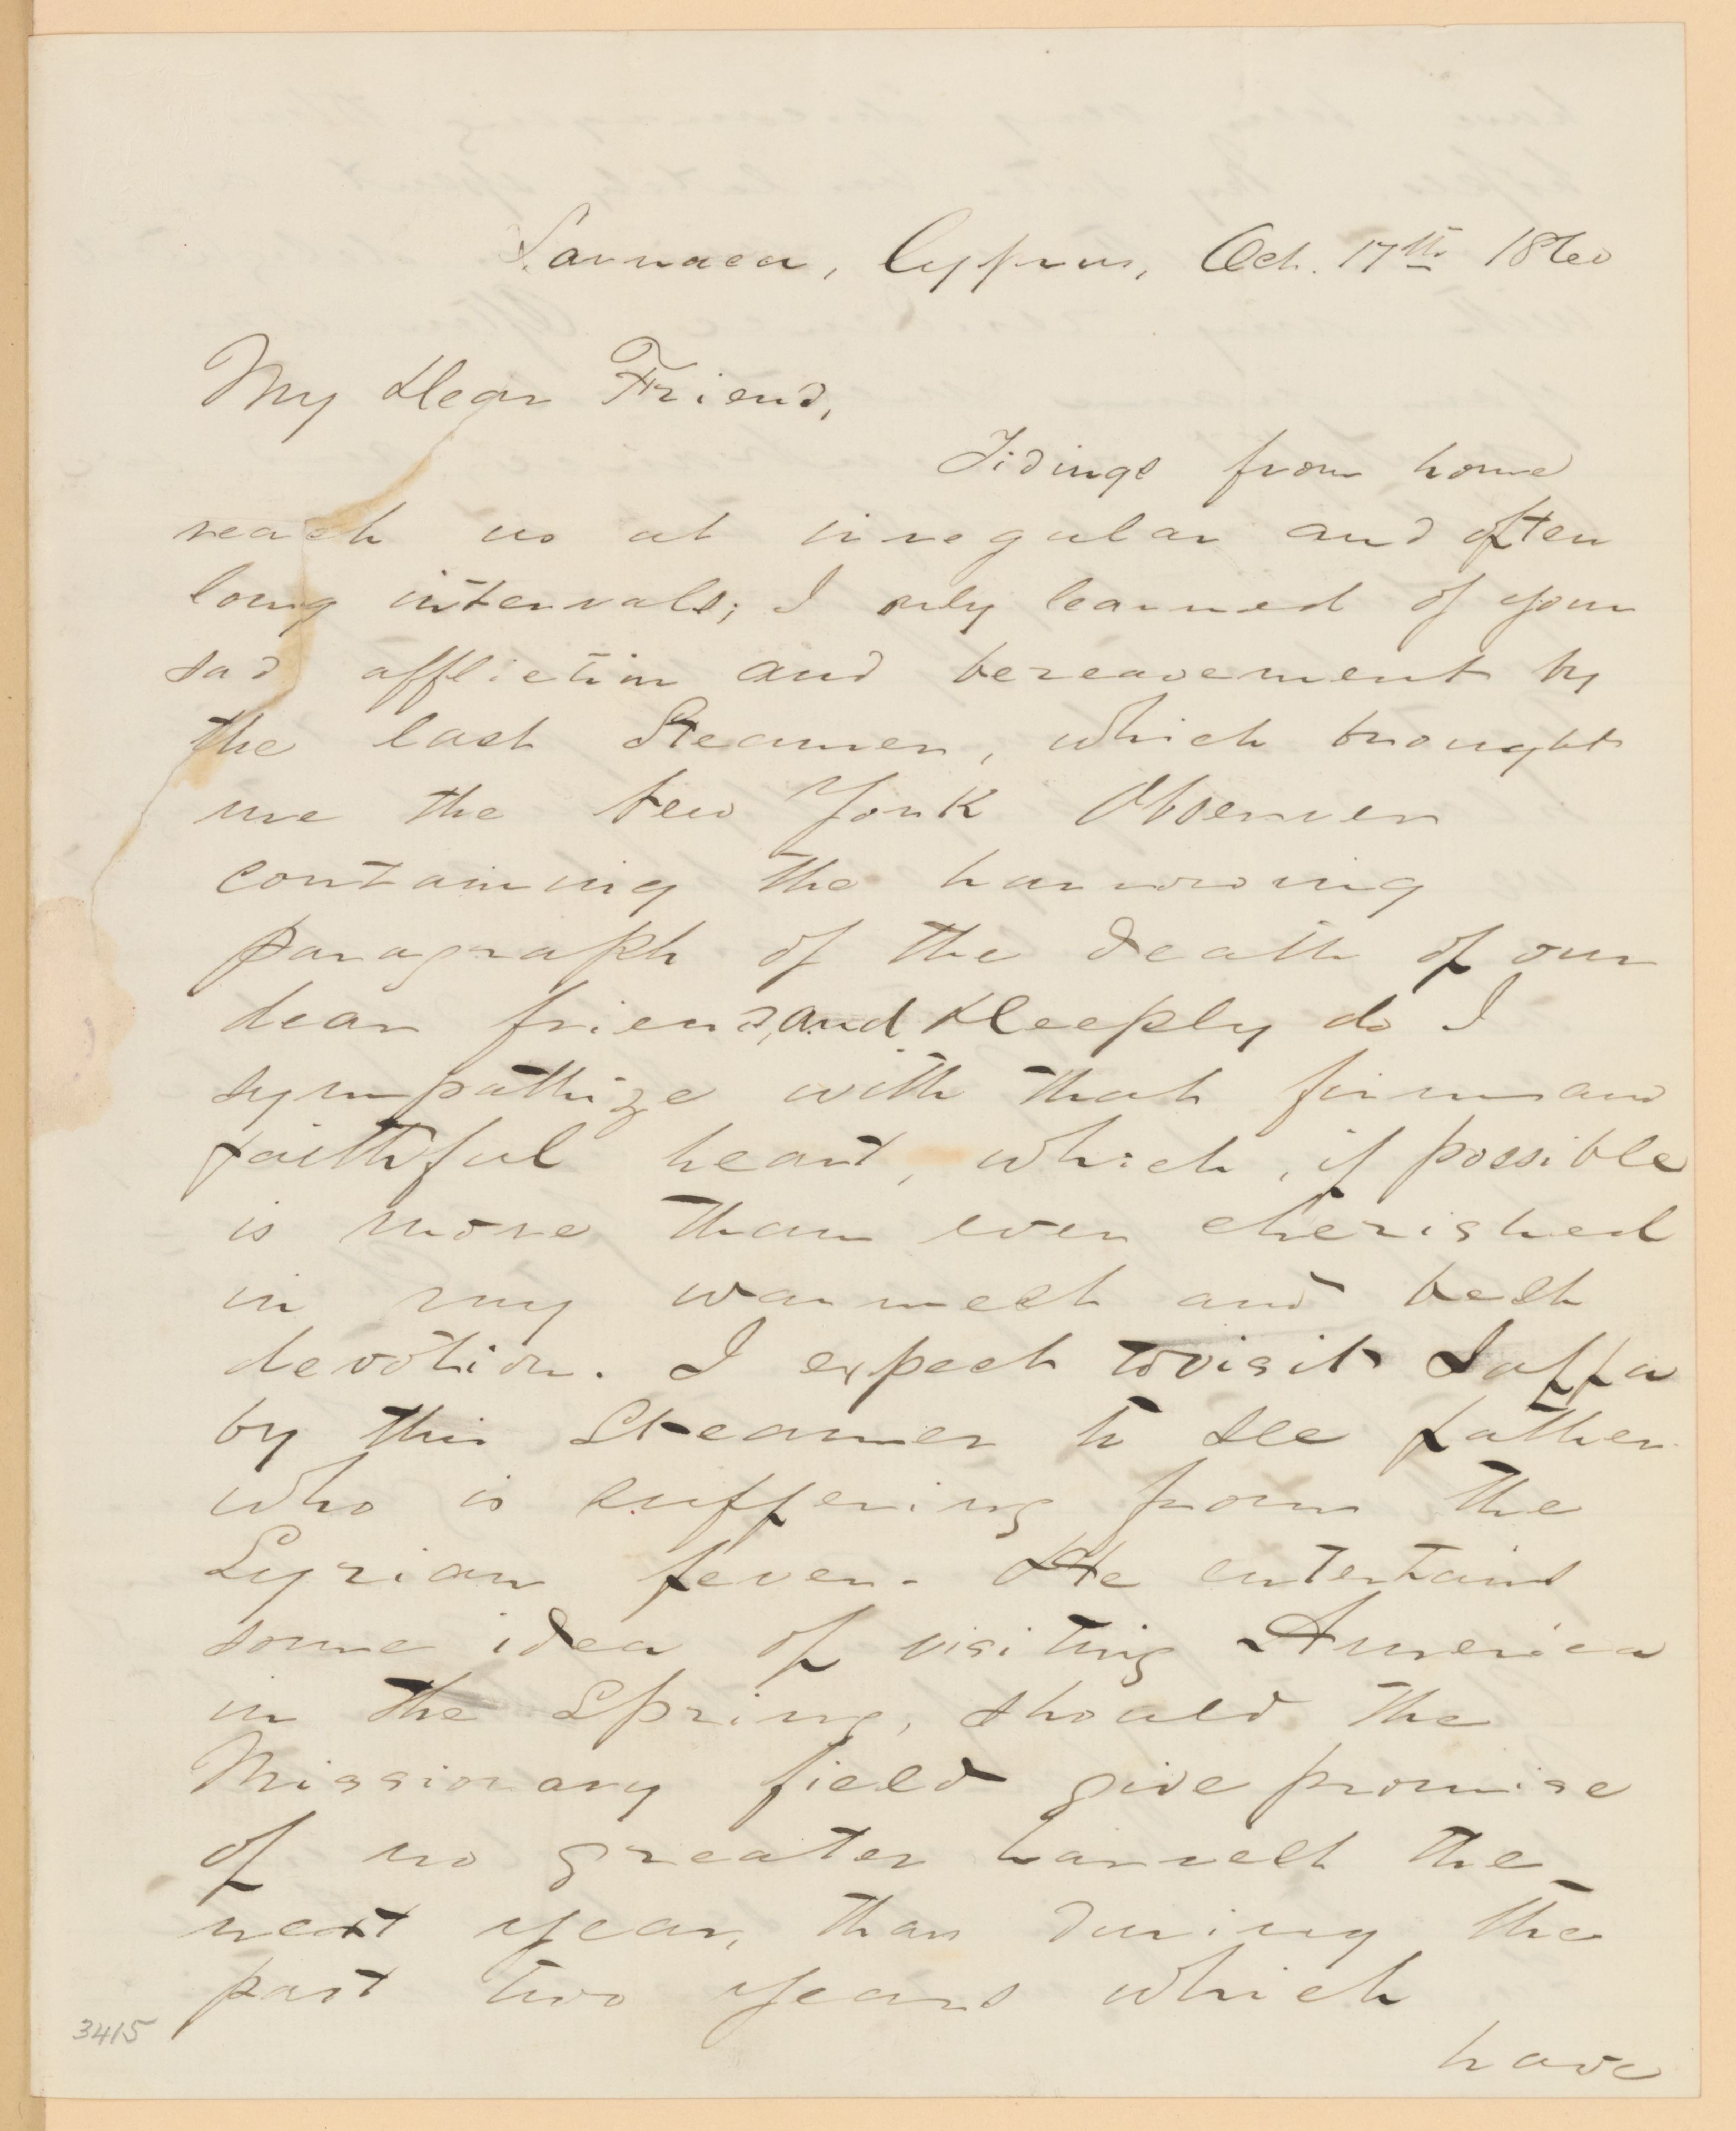 Larnaca, Cyprus, Oct. 17th 1860
My Dear Friend,
Tidings from home
reach us at irregular and often
long intervals; I only learned of your
sad affliction and bereavement by
the last Steamer, which brought
me the New York Observer
containing the harrowing
paragraph of the death of our
dear friend, and deeply do I
sympathize with that firm and
faithful heart, which, if possible
is more than ever cherished
in my warmest and best
devotion. I expect to visit Jaffa
by this Steamer to see father
who is suffering from the
Syrian fever. He entertains
some idea of visiting America
in the Spring, should the
Missionary field give promise
of no greater harvest the
next year, than during the
past two years which
have
3415